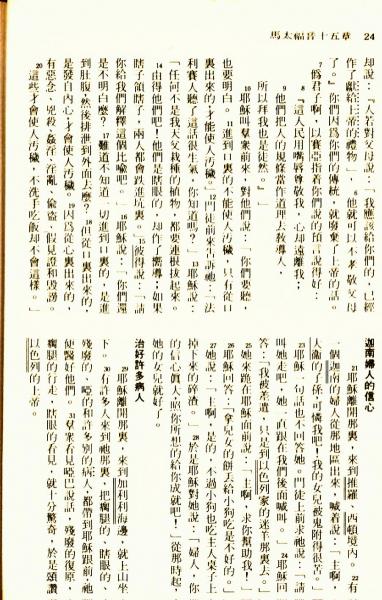 馬太福音十五章 24
却說：『人若對父母說：「我應該給你們的，已經
作了獻給上帝的禮物」，6他就可以不孝敬父母
了。』你們因爲你們的傳統，就廢棄了上帝的話。
7僞君子啊，以賽亞指着你們說的預言說得好：
8『這人民用嘴唇尊敬我，心却遠離我；
9他們把人的規條當作道理去教導人，
所以拜我也是徒然。』」
10耶穌叫羣衆前來，對他們說：「你們要聽，
也要明白。11進到口裏的不能使人汚穢，只有從口
裏出來的才能使人汚穢。」12門徒前來告訴祂：「法
利賽人聽了這話很生氣，你知道嗎？」13耶穌說：
「任何不是我天父栽種的植物，都要連根拔起來。
14由得他們吧！他們是瞎眼的，却作了嚮導；如果
瞎子領瞎子，兩人都會跌進坑裏。」15彼得說：「請
你給我們解釋這個比喩吧。」16耶穌說：「你們還
是不明白麼？17難道不知道一切進到口裏的，是進
到肚腹，然後排泄到外面去麼？18但從口裏出來的，
是發自內心，才會使人汚穢。19因爲從心裏出來的，
有惡念、兇殺、姦淫、淫亂、偷盜、假見證和毀謗。
20這些才會使人汚穢，不洗手吃飯却不會這樣。」
迦南婦人的信心
21耶穌離開那裏，來到推羅、西頓境內。22有
一個迦南的婦人從那地區出來，喊着說：「主啊，
大衞的子孫，可憐我吧！我的女兒被鬼附得很苦。」
23耶穌一句話也不回答她。門徒上前求祂說：「請
叫她走吧，她一直跟在我們後面喊叫。」24耶穌回
答：「我被差遣，只是到以色列家的迷羊那裏去。」
25她來跪在耶穌面前說：「主啊，求你幫助我！」
26耶穌回答：「拿兒女的餅去給小狗吃是不好的。」
27她說：「主啊，是的，不過小狗也吃主人桌子上
掉下來的碎渣。」28於是耶穌對她說：「婦人，你
的信心眞大，照你所想的給你成就吧！」從那時起，
她的女兒就好了。
治好許多病人
29耶穌離開那裏，來到加利利海邊，就上山坐
下。30有許多人來到祂那裏，把瘸腿的、瞎眼的、
殘廢的、啞的和許多別的病人，都帶到耶穌跟前，祂
使醫好他們。31羣衆看見啞巴說話，殘廢的復原，
瘸腿的行走，瞎眼的看見，就十分驚奇，於是頌讚
以色列的上帝。